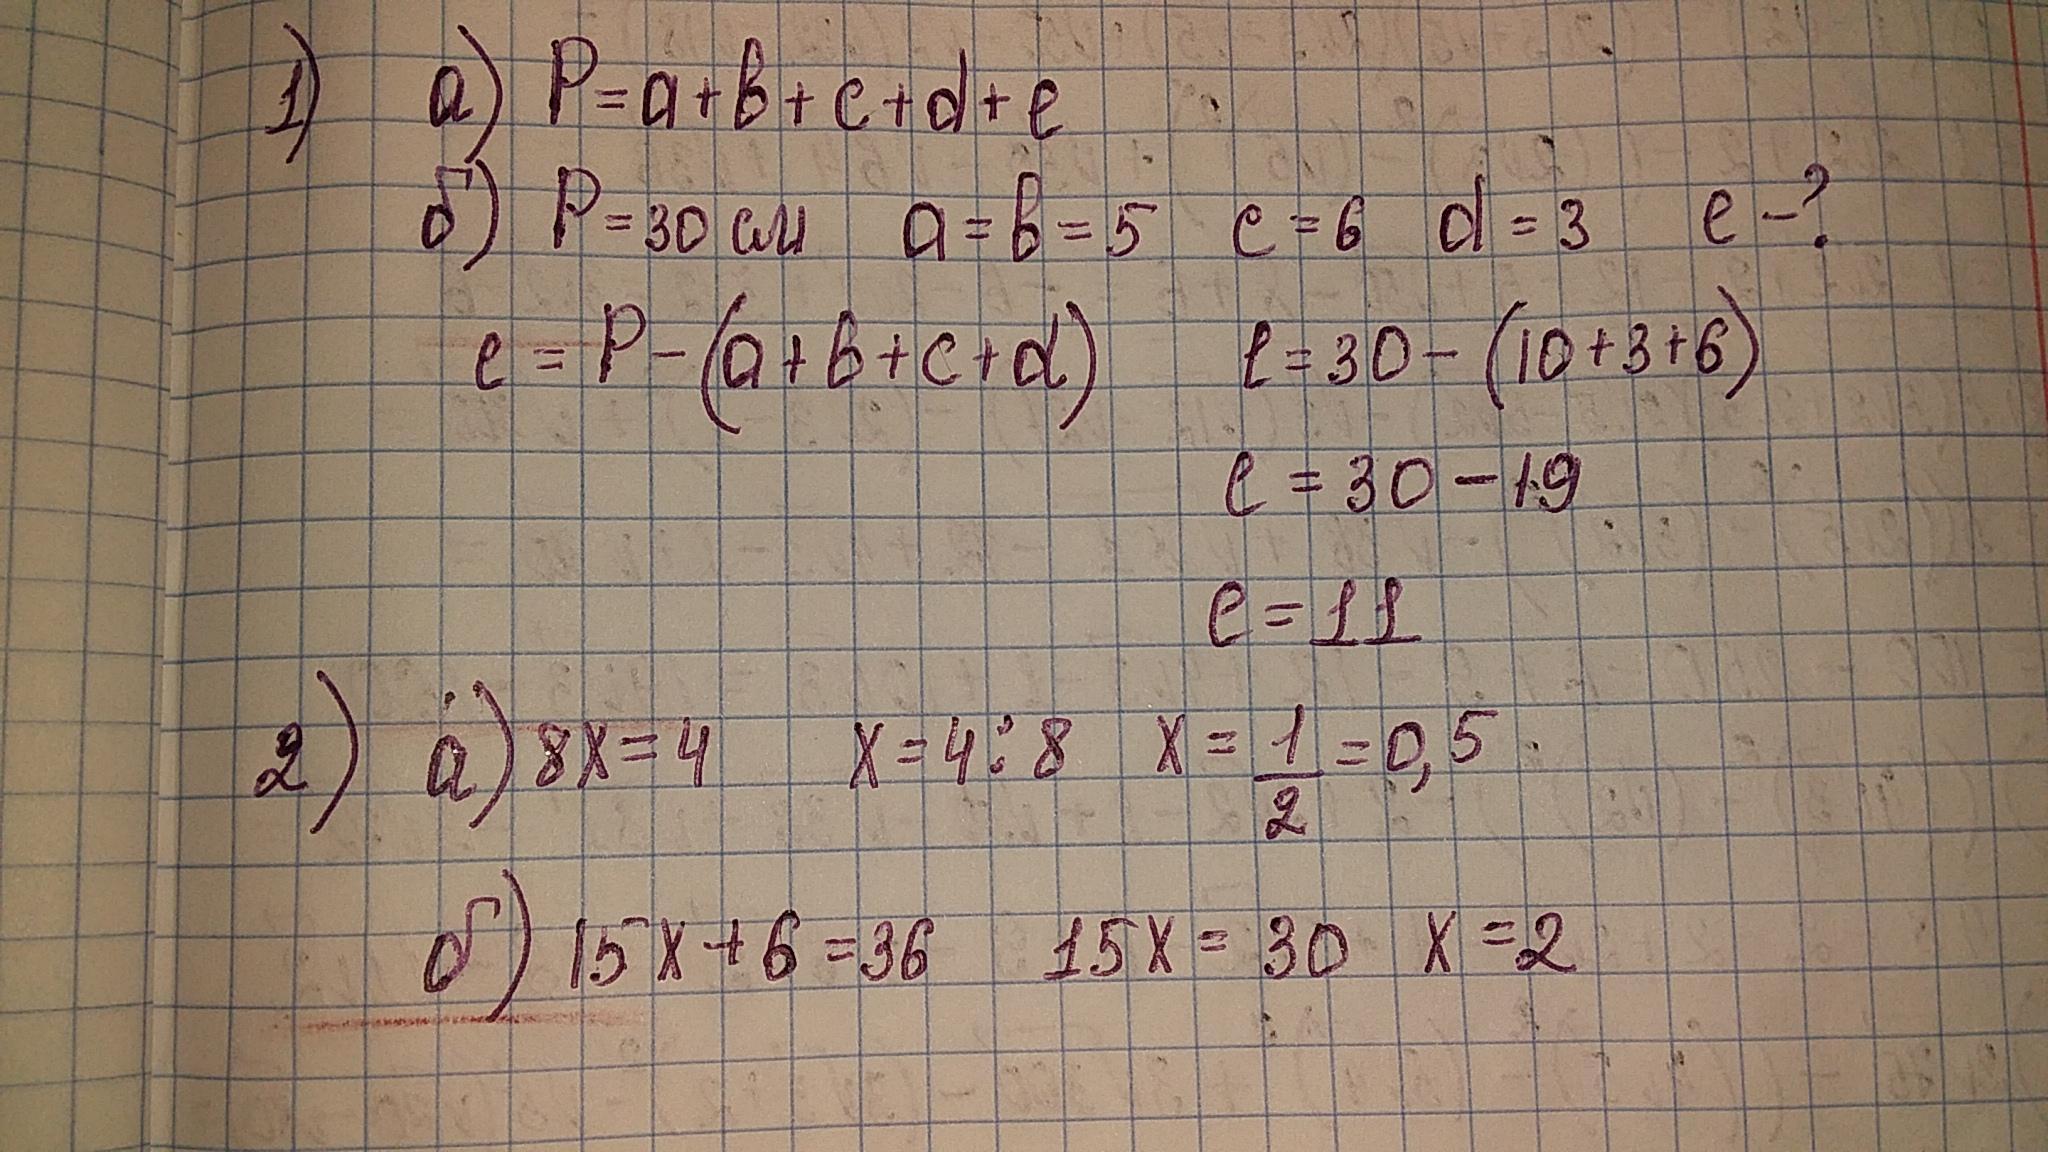 1) а) P=a+b+c+d+e
б) P=30 см a=b=5 c=6 d=3 e-?
e=P-(a+b+c+d) e=30-(10+3+6)
e=30-19
e=11
2) а) 8x=4 x=4:8 x=1/2=0,5
б) 15x+6=36 15x=30 x=2